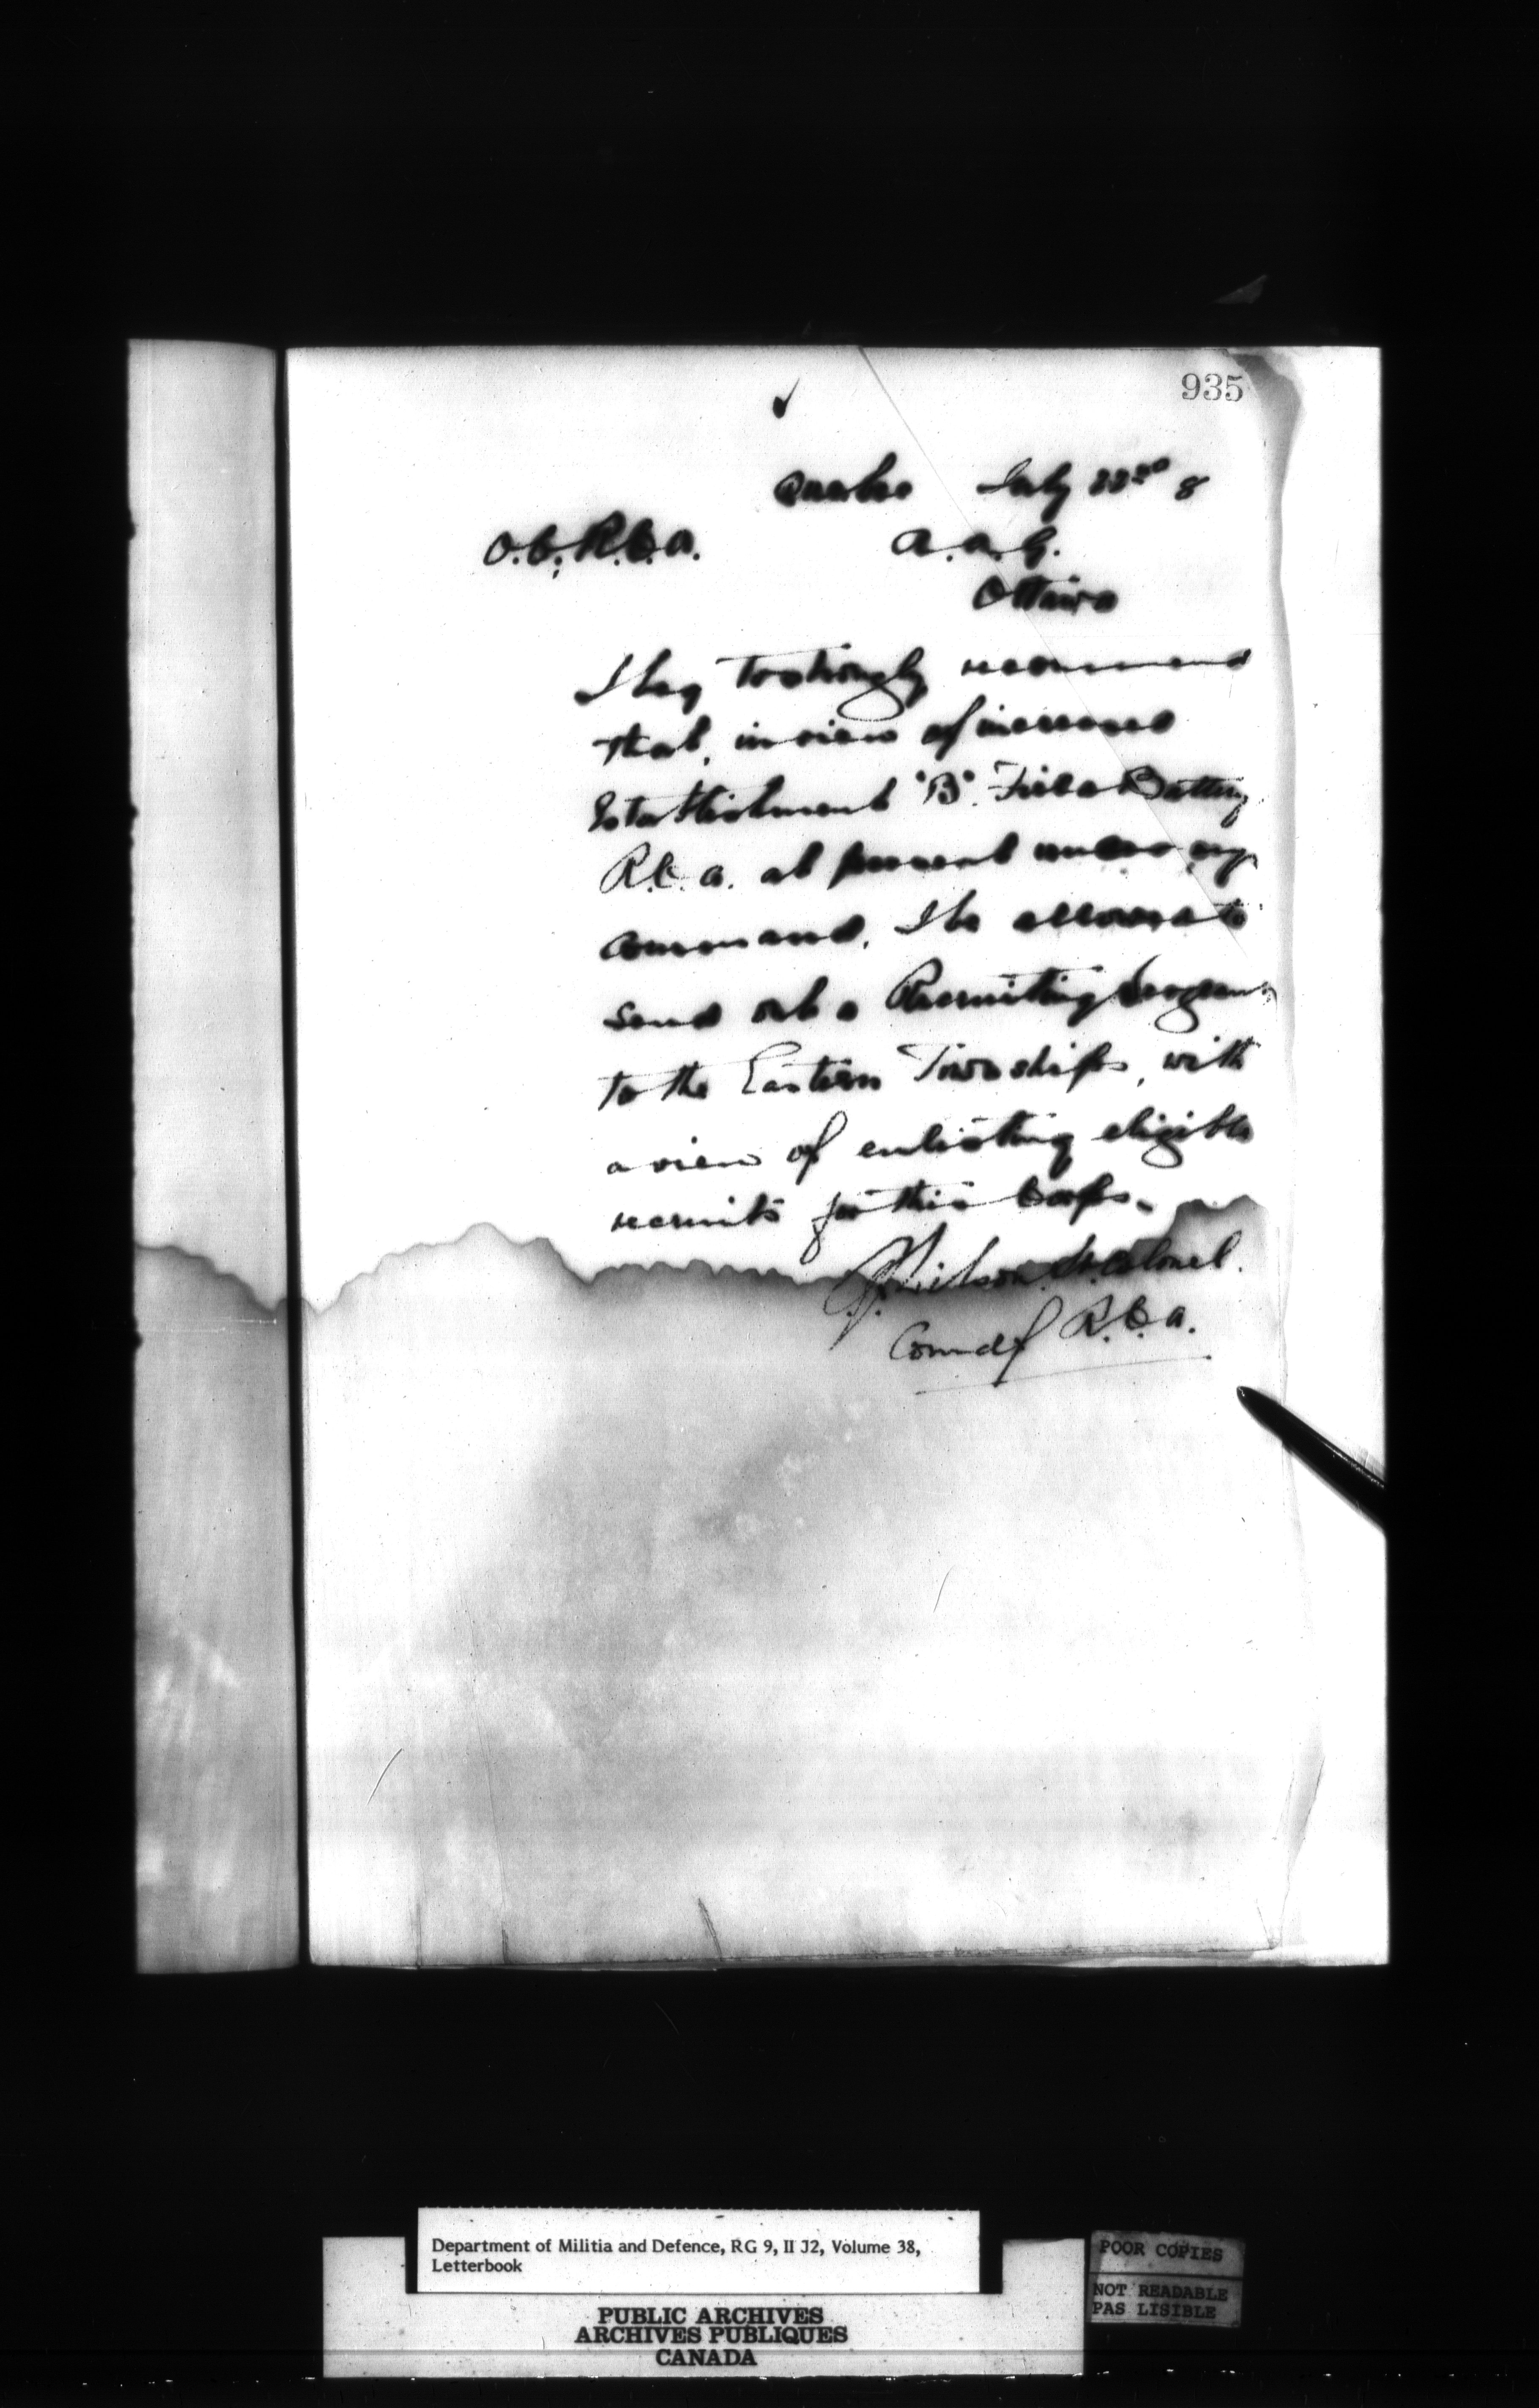 935
Quebec July 22nd 8
O.C. R.C.A. A.A.G.
Ottawa
I beg to strongly recommend
that, in view of increased
Establishment "B" Field Battery
R.C.A. at present under my
command, I be allowed to
send out a Recruiting Sergeant
to the Eastern Townships, with
a view of enlisting eligible
recruits for this Corps.
Lt. Colonel.
Comdg R.C.A.
Department of Militia and Defence, RG 9, II J2, Volume 38,
Letterbook
PUBLIC ARCHIVES
ARCHIVES PUBLIQUES
CANADA
POOR COPIES
NOT READABLE
PAS LISIBLE